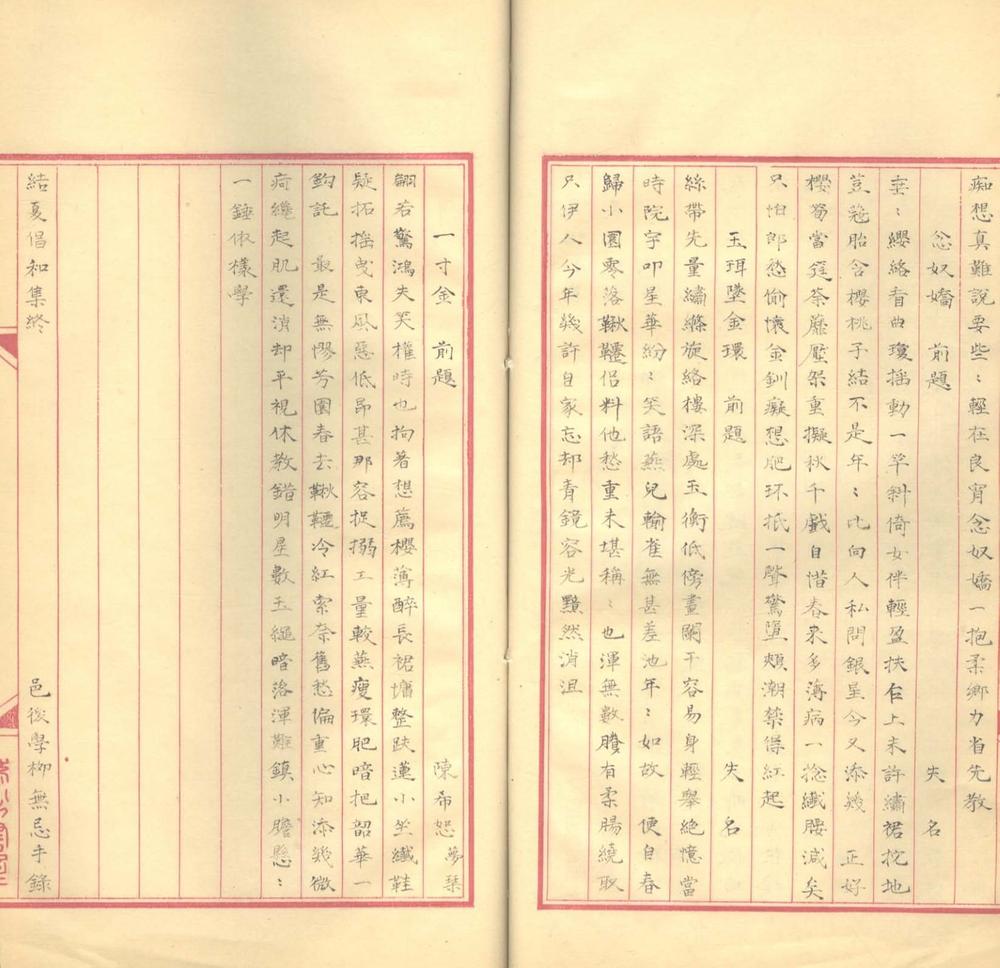 痴想真難說要些〻輕在良宵念奴嬌一抱柔鄉力省先教
念奴嬌 前題 失名
垂〻纓絡看曲瓊搖動一竿斜倚女伴輕盈扶乍上未許繡裙拕地
荳蔻胎含櫻桃子結不是年〻比向人私問銀星今又添幾 正好
櫻筍當筵荼蘼壓架重擬秋千戲自惜春來多薄病一捻纖腰減矣
只怕郎愁偷懷金釧癡想肥环抵一聲驚墮頰潮禁得紅起
玉珥墜金環 前題 失名
絲帶先量繡絛旋絡樓深處玉衡低傍畫闌干容易身輕舉絕憶當
時院宇叩星華紛〻笑語燕兒輸雀無甚差池年〻如故 便自春
歸小園零落鞦韆侶料他愁重未堪稱〻也渾無數賸有柔腸繞取
只伊人今年幾許自家忘却青鏡容光黯然消沮
一寸金 前題 陳希恕夢琹
翩若驚鴻夫笑權時也拘著想薦櫻薄醉長裙慵整趺蓮小坐纖鞋
疑拓搖曳東風惡低昂甚那容捉搦工量較燕瘦環肥暗把韶華一
鉤託 最是無憀芳園春去鞦韆冷紅索奈舊愁偏重心知添幾微
疴纔起肌還消却平視休教錯明星數玉繩暗落渾難鎮小膽懸〻
一錘俶樣學
結夏倡和集終 邑後學柳無忌手錄